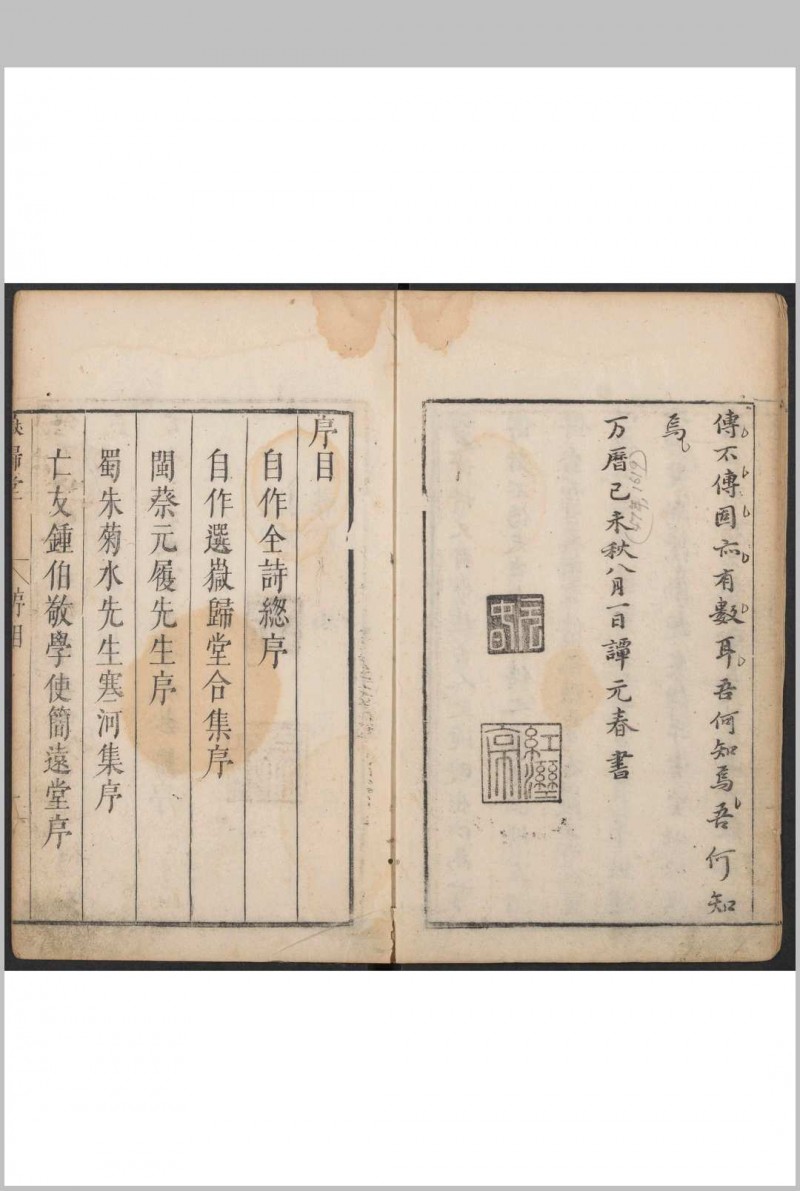 傳不傳固亦有數耳吾何知焉吾何知
焉
万曆己未秋八月一日譚元春書
序目
自作全詩總序
自作選嶽歸堂合集序
閩蔡元履先生序
蜀朱菊水先生寒河集序
亡友鍾伯敬學使簡遠堂序
歸堂
序目